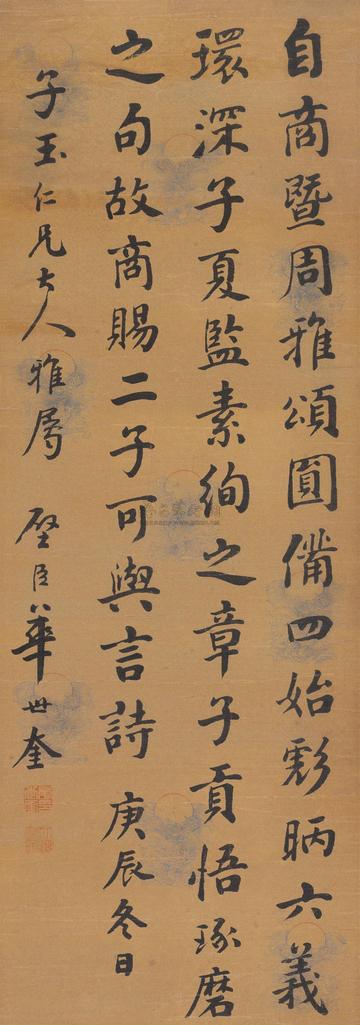 自商暨周雅頌圓備四始彪昞六義
環深子夏監素絢之章子貢悟琢磨
之句故商賜二子可與言詩 庚辰冬日
子玉仁兄大人雅屬 璧臣華世奎